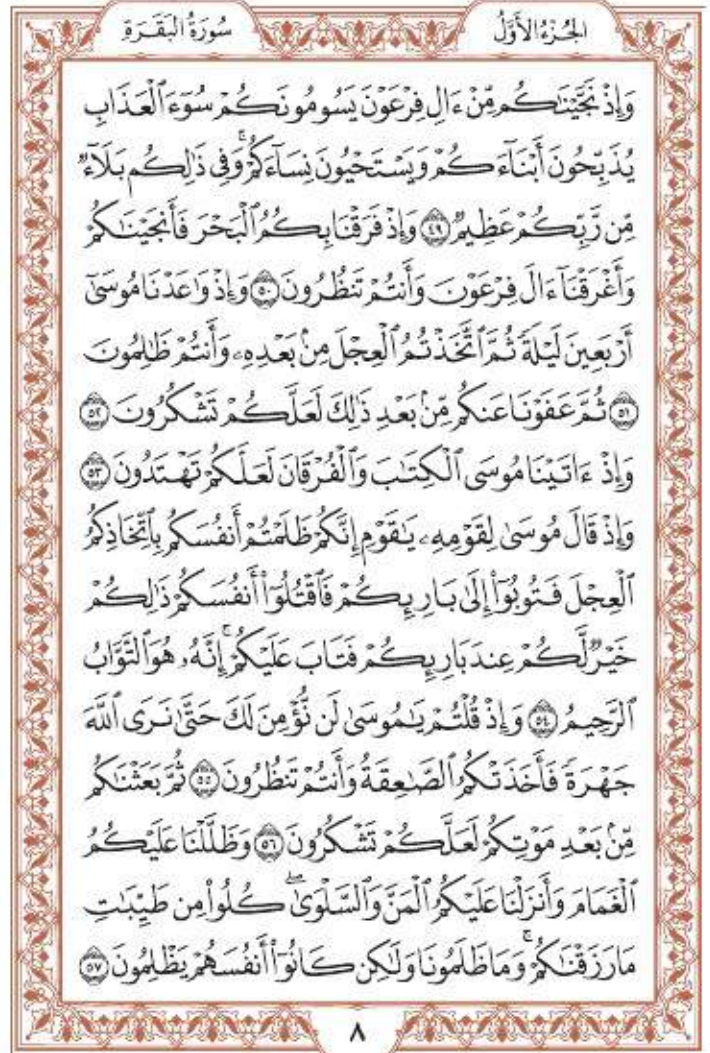 الجُزْءُ الأَوَّلُ
سُورَةُ الْبَقَرَةِ
وَإِذْ نَجَّيْنَـٰكُم مِّنْ ءَالِ فِرْعَوْنَ يَسُومُونَكُمْ سُوٓءَ ٱلْعَذَابِ
يُذَبِّحُونَ أَبْنَآءَكُمْ وَيَسْتَحْيُونَ نِسَآءَكُمْ ۚ وَفِى ذَٰلِكُم بَلَآءٌ
مِّن رَّبِّكُمْ عَظِيمٌ ٤٩ وَإِذْ فَرَقْنَا بِكُمُ ٱلْبَحْرَ فَأَنجَيْنَـٰكُمْ
وَأَغْرَقْنَآ ءَالَ فِرْعَوْنَ وَأَنتُمْ تَنظُرُونَ ٥٠ وَإِذْ وَٰعَدْنَا مُوسَىٰٓ
أَرْبَعِينَ لَيْلَةً ثُمَّ ٱتَّخَذْتُمُ ٱلْعِجْلَ مِنۢ بَعْدِهِۦ وَأَنتُمْ ظَـٰلِمُونَ
٥١ ثُمَّ عَفَوْنَا عَنكُم مِّنۢ بَعْدِ ذَٰلِكَ لَعَلَّكُمْ تَشْكُرُونَ ٥٢
وَإِذْ ءَاتَيْنَا مُوسَى ٱلْكِتَـٰبَ وَٱلْفُرْقَانَ لَعَلَّكُمْ تَهْتَدُونَ ٥٣
وَإِذْ قَالَ مُوسَىٰ لِقَوْمِهِۦ يَـٰقَوْمِ إِنَّكُمْ ظَلَمْتُمْ أَنفُسَكُم بِٱتِّخَاذِكُمُ
ٱلْعِجْلَ فَتُوبُوٓا۟ إِلَىٰ بَارِئِكُمْ فَٱقْتُلُوٓا۟ أَنفُسَكُمْ ذَٰلِكُمْ
خَيْرٌ لَّكُمْ عِندَ بَارِئِكُمْ فَتَابَ عَلَيْكُمْ ۚ إِنَّهُۥ هُوَ ٱلتَّوَّابُ
ٱلرَّحِيمُ ٥٤ وَإِذْ قُلْتُمْ يَـٰمُوسَىٰ لَن نُّؤْمِنَ لَكَ حَتَّىٰ نَرَى ٱللَّهَ
جَهْرَةً فَأَخَذَتْكُمُ ٱلصَّـٰعِقَةُ وَأَنتُمْ تَنظُرُونَ ٥٥ ثُمَّ بَعَثْنَـٰكُم
مِّنۢ بَعْدِ مَوْتِكُمْ لَعَلَّكُمْ تَشْكُرُونَ ٥٦ وَظَلَّلْنَا عَلَيْكُمُ
ٱلْغَمَامَ وَأَنزَلْنَا عَلَيْكُمُ ٱلْمَنَّ وَٱلسَّلْوَىٰ ۖ كُلُوا۟ مِن طَيِّبَـٰتِ
مَا رَزَقْنَـٰكُمْ ۚ وَمَا ظَلَمُونَا وَلَـٰكِن كَانُوٓا۟ أَنفُسَهُمْ يَظْلِمُونَ ٥٧
٨